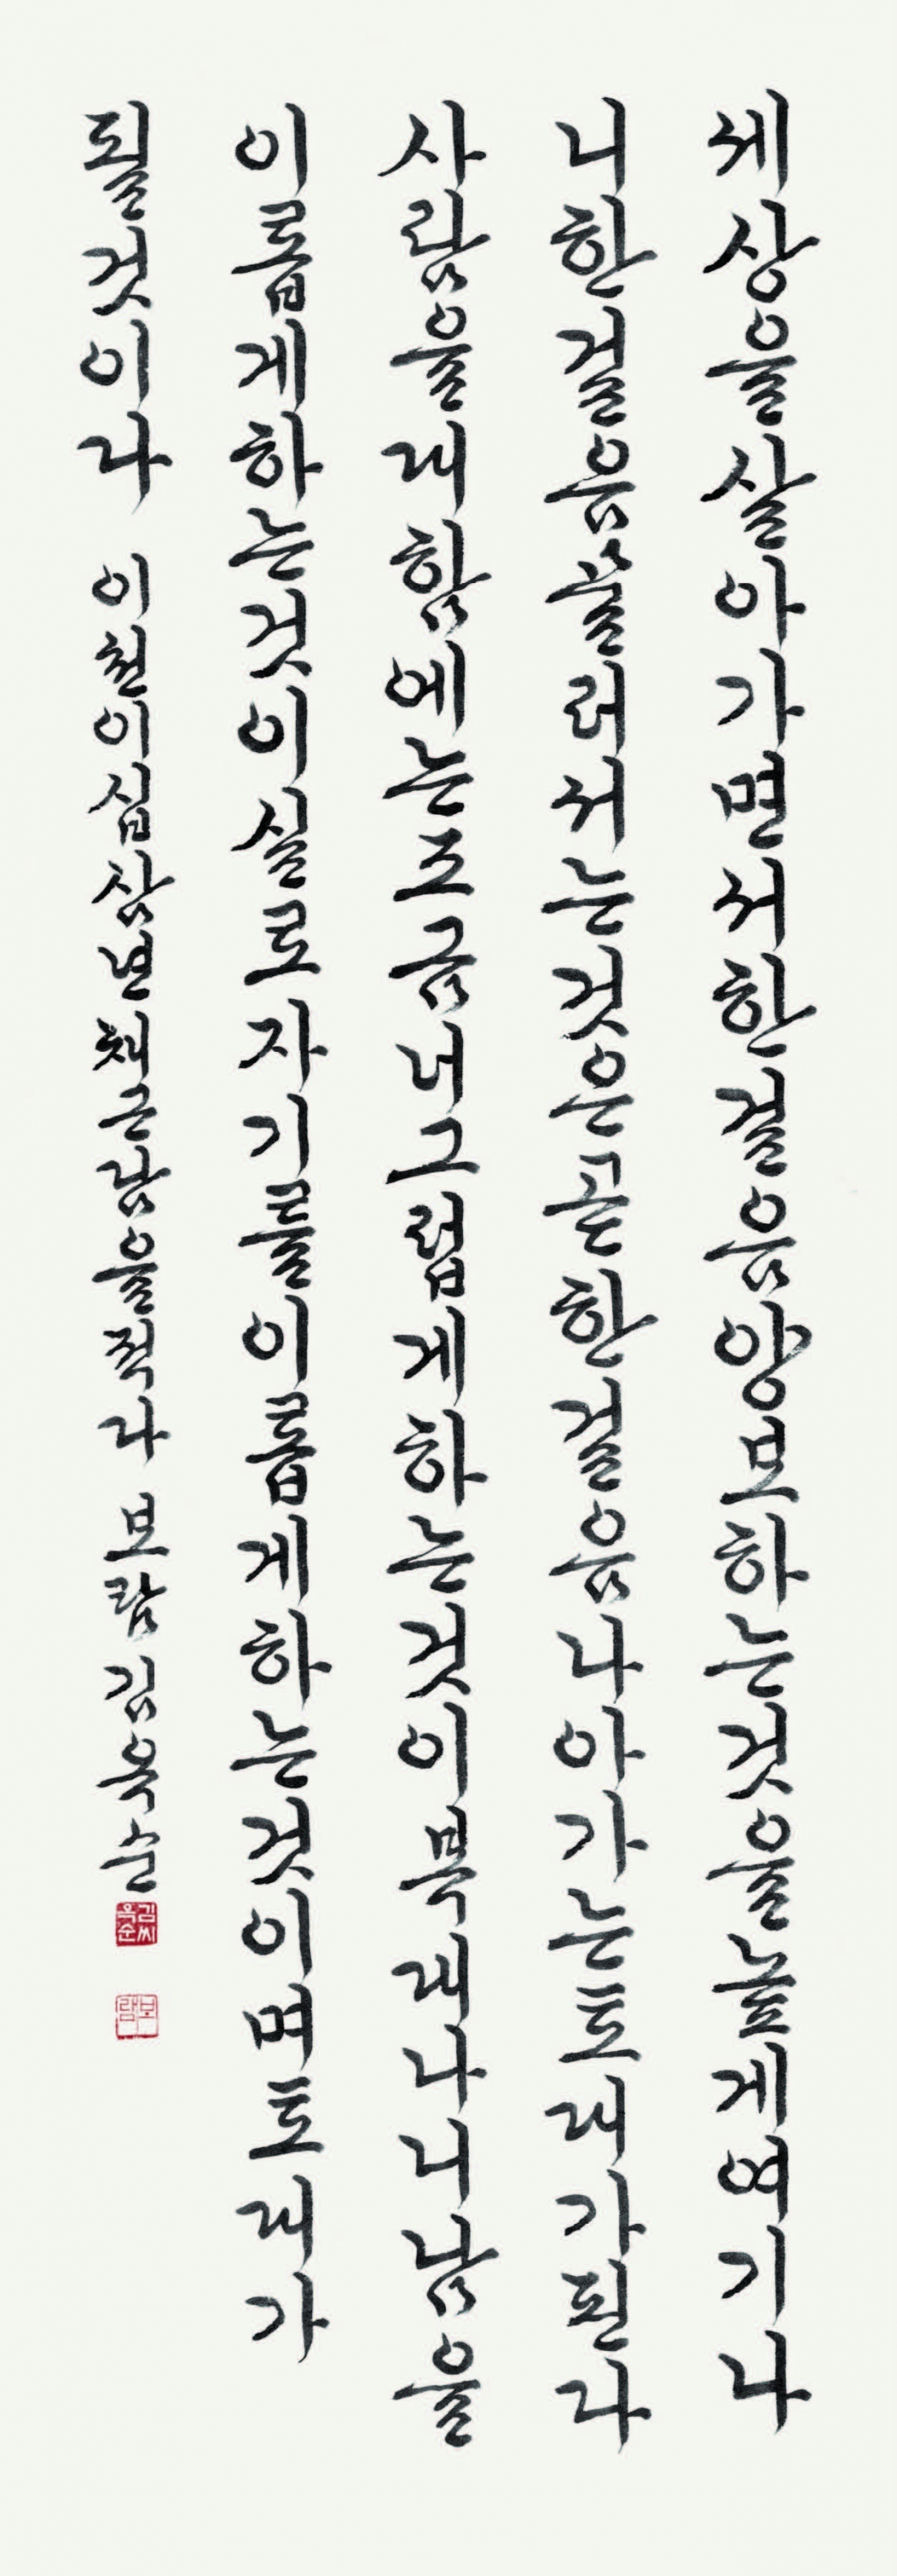 세상을살아가면서한걸음양보하는것을높게여기나
니한걸음물러서는것은곧한걸음나아가는토대가된다
사람을대함에는조금너그럽게하는것이복대나니남을
이롭게하는것이실로자기를이롭게하는것이며토대가
될것이다 이천이십삼년채근담을적다 보람 김옥순
김씨옥순
보람